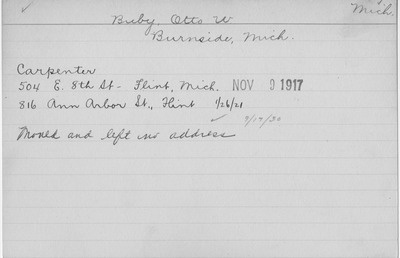 Mich.
Buby, Otto W
Burnside, Mich.
Carpenter
504 E. 8th St - Flint, Mich. NOV 9 1917
816 Ann Arbor St., Flint 1/26/21
9/17/30
Moved and left no address